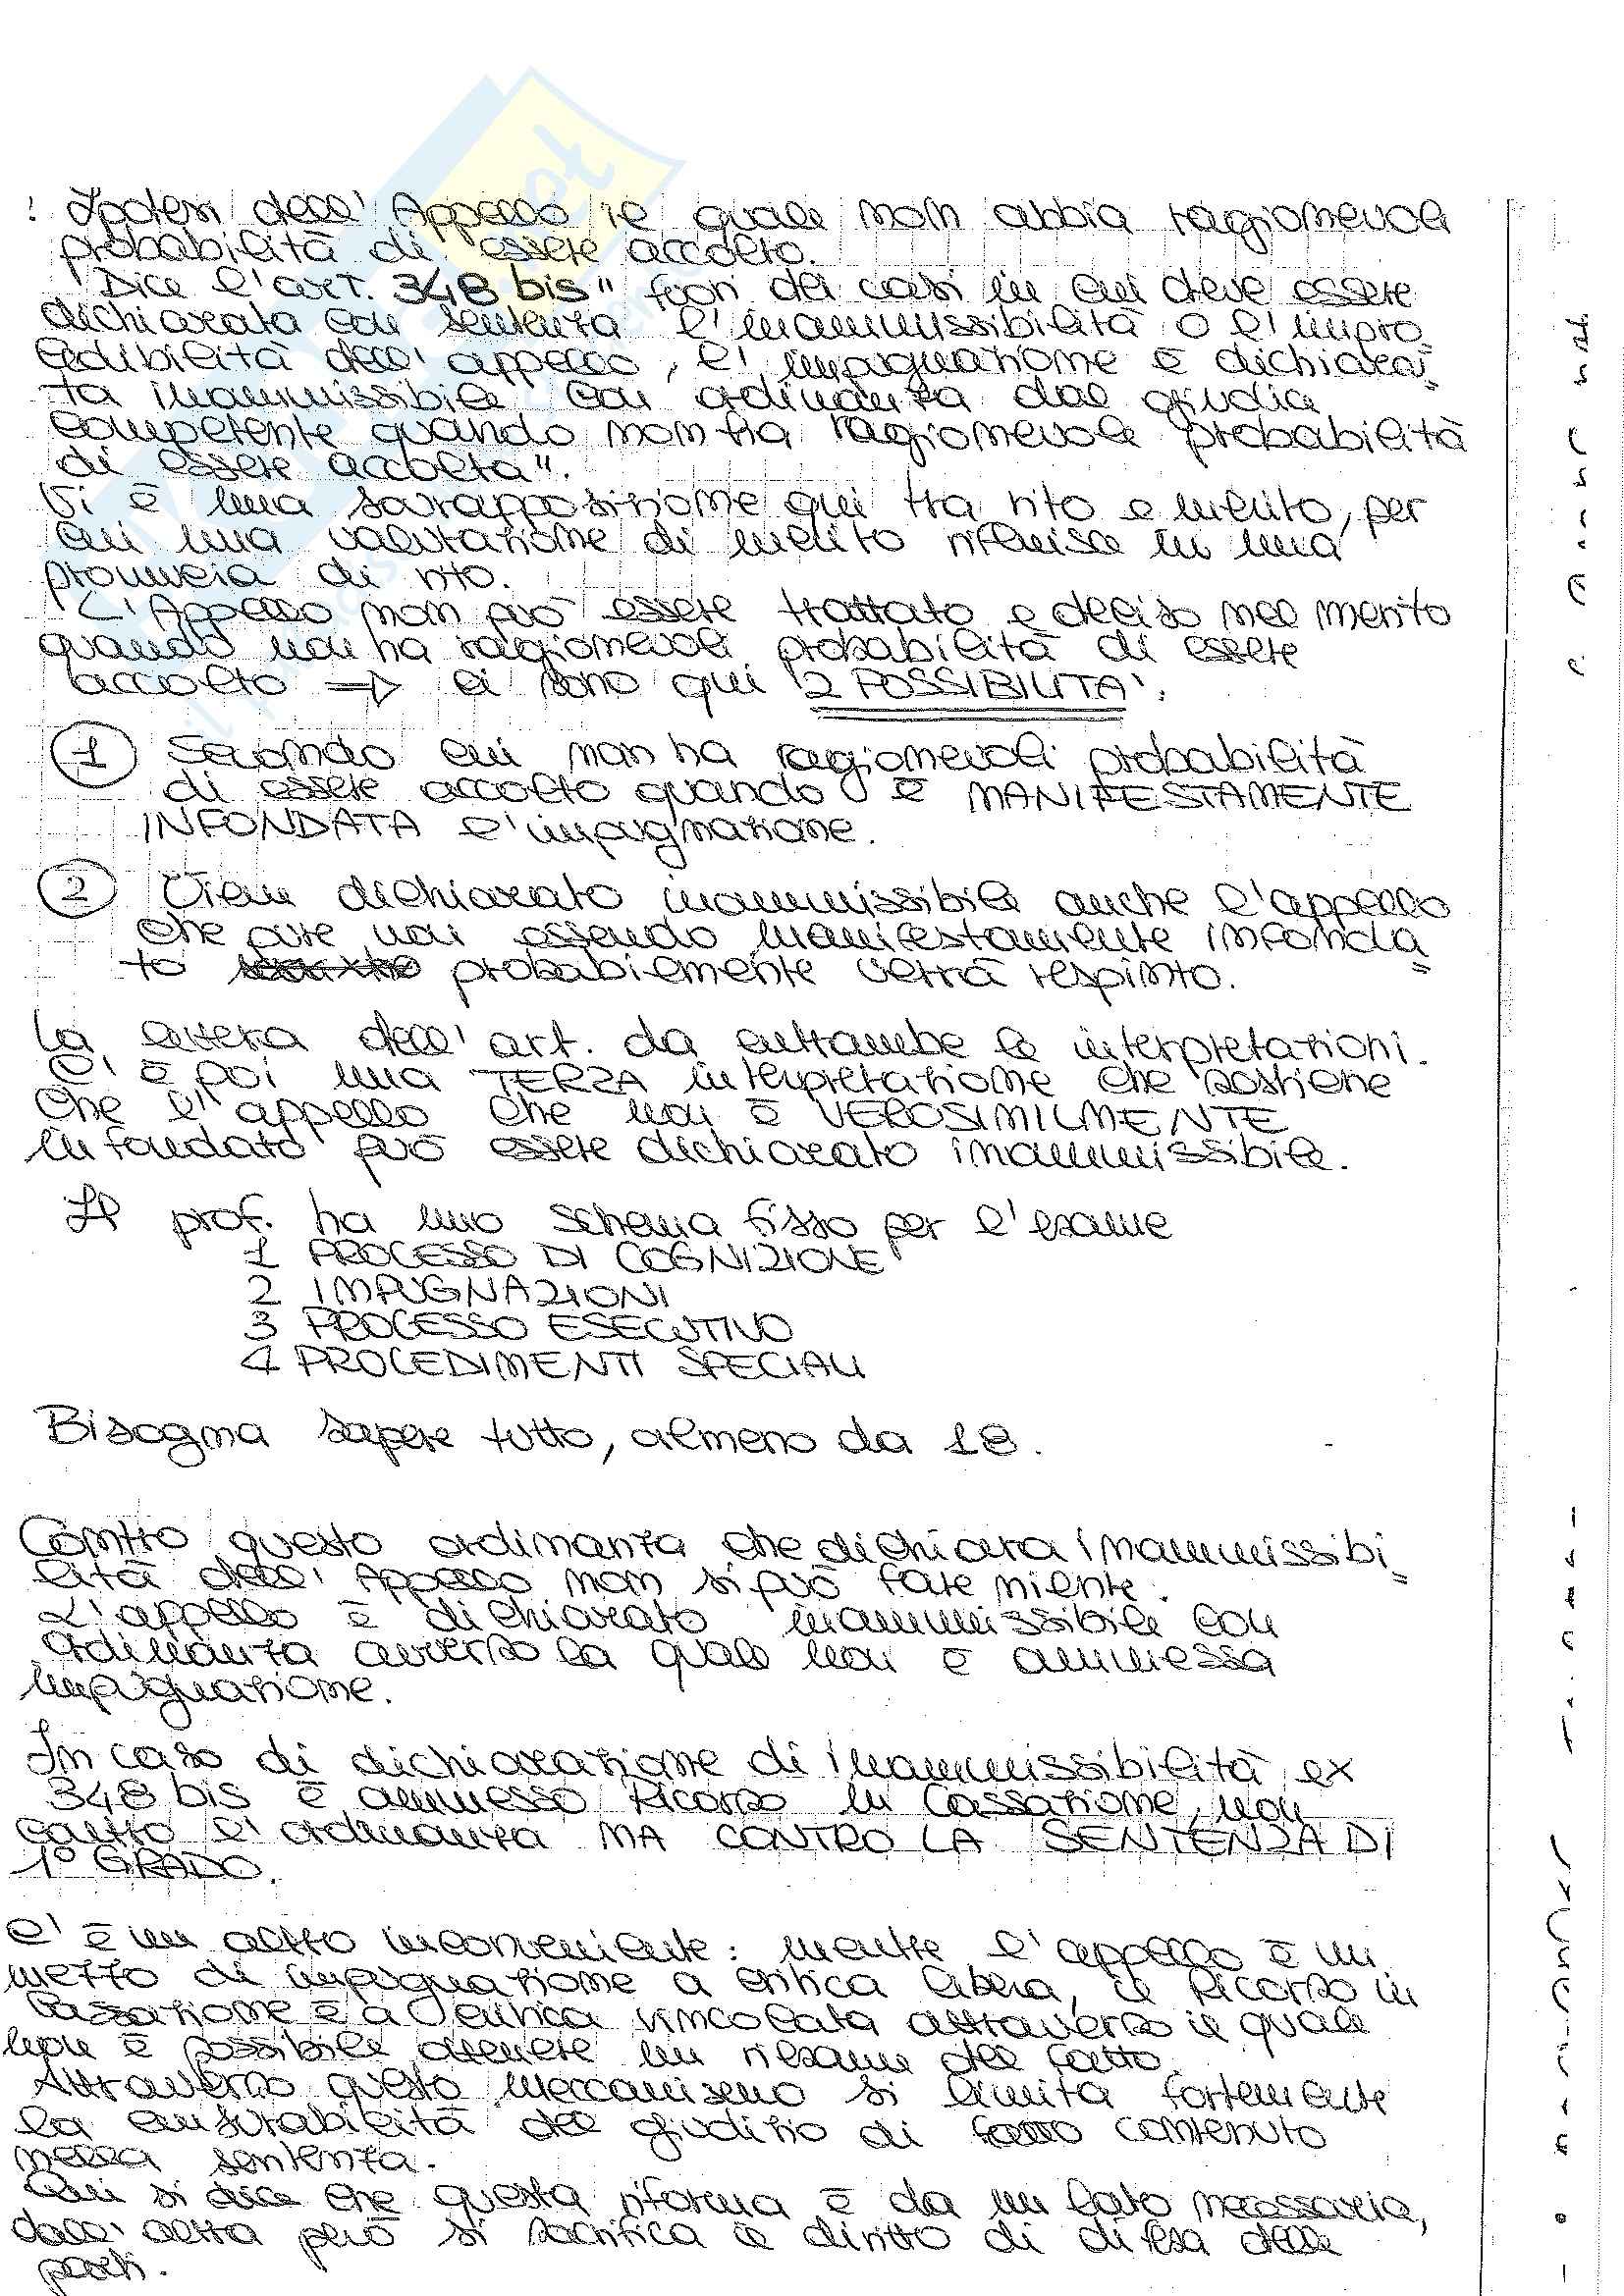 ! Ipotesi dell' Appello il quale non abbia ragionevoli
probabilità di essere accolto.
Dice l'art. 348 bis " fuori dei casi in cui deve essere
dichiarata con sentenza l'inammissibilità o l'impro
cedibilità dell' appello, l' impugnazione è dichiara=
ta inammissibile con ordinanza dal giudice
competente quando non ha ragionevole probabilità
di essere accolta".
Vi è una sovrapposizione qui tra rito e merito, per
cui una valutazione di merito rifluisce in una
pronuncia di rito.
L'Appello non può essere trattato e deciso nel merito
quando non ha ragionevoli probabilità di essere
accolto => ci sono qui 2 POSSIBILITA'.
1 Secondo cui non ha ragionevoli probabilità
di essere accolto quando è MANIFESTAMENTE
INFONDATA l'impugnazione.
2 Viene dichiarato inammissibile anche l'appello
che pure non essendo manifestamente infonda=
to probabilmente verrà respinto.
La lettera dell' art. da entrambe le interpretazioni.
C' è poi una TERZA interpretazione che sostiene
che l' appello che non è VEROSIMILMENTE
infondato può essere dichiarato inammissibile.
Il prof. ha uno schema fisso per l'esame
1 PROCESSO DI COGNIZIONE
2 IMPUGNAZIONI
3 PROCESSO ESECUTIVO
4 PROCEDIMENTI SPECIALI
Bisogna sapere tutto, almeno da 18.
Contro questo ordinanza che dichiara inammissibi=
lità dell' Appello non si può fare niente.
L'appello è dichiarato inammissibile con
ordinanza avverso la quale non è ammessa
impugnazione.
In caso di dichiarazione di inammissibilità ex
348 bis è ammesso Ricorso in Cassazione, non
contro l'ordinanza MA CONTRO LA SENTENZA DI
1° GRADO.
C' è un altro inconveniente: mentre l'appello è un
mezzo di impugnazione a critica libera, il Ricorso in
Cassazione è a critica vincolata attraverso il quale
non è possibile ottenere un riesame del fatto.
Attraverso questo meccanismo si limita fortemente
la censurabilità del giudizio di fatto contenuto
nella sentenza.
Qui si dice che questa riforma è da un lato necessaria,
dall' altra però si sacrifica il diritto di difesa delle
parti.